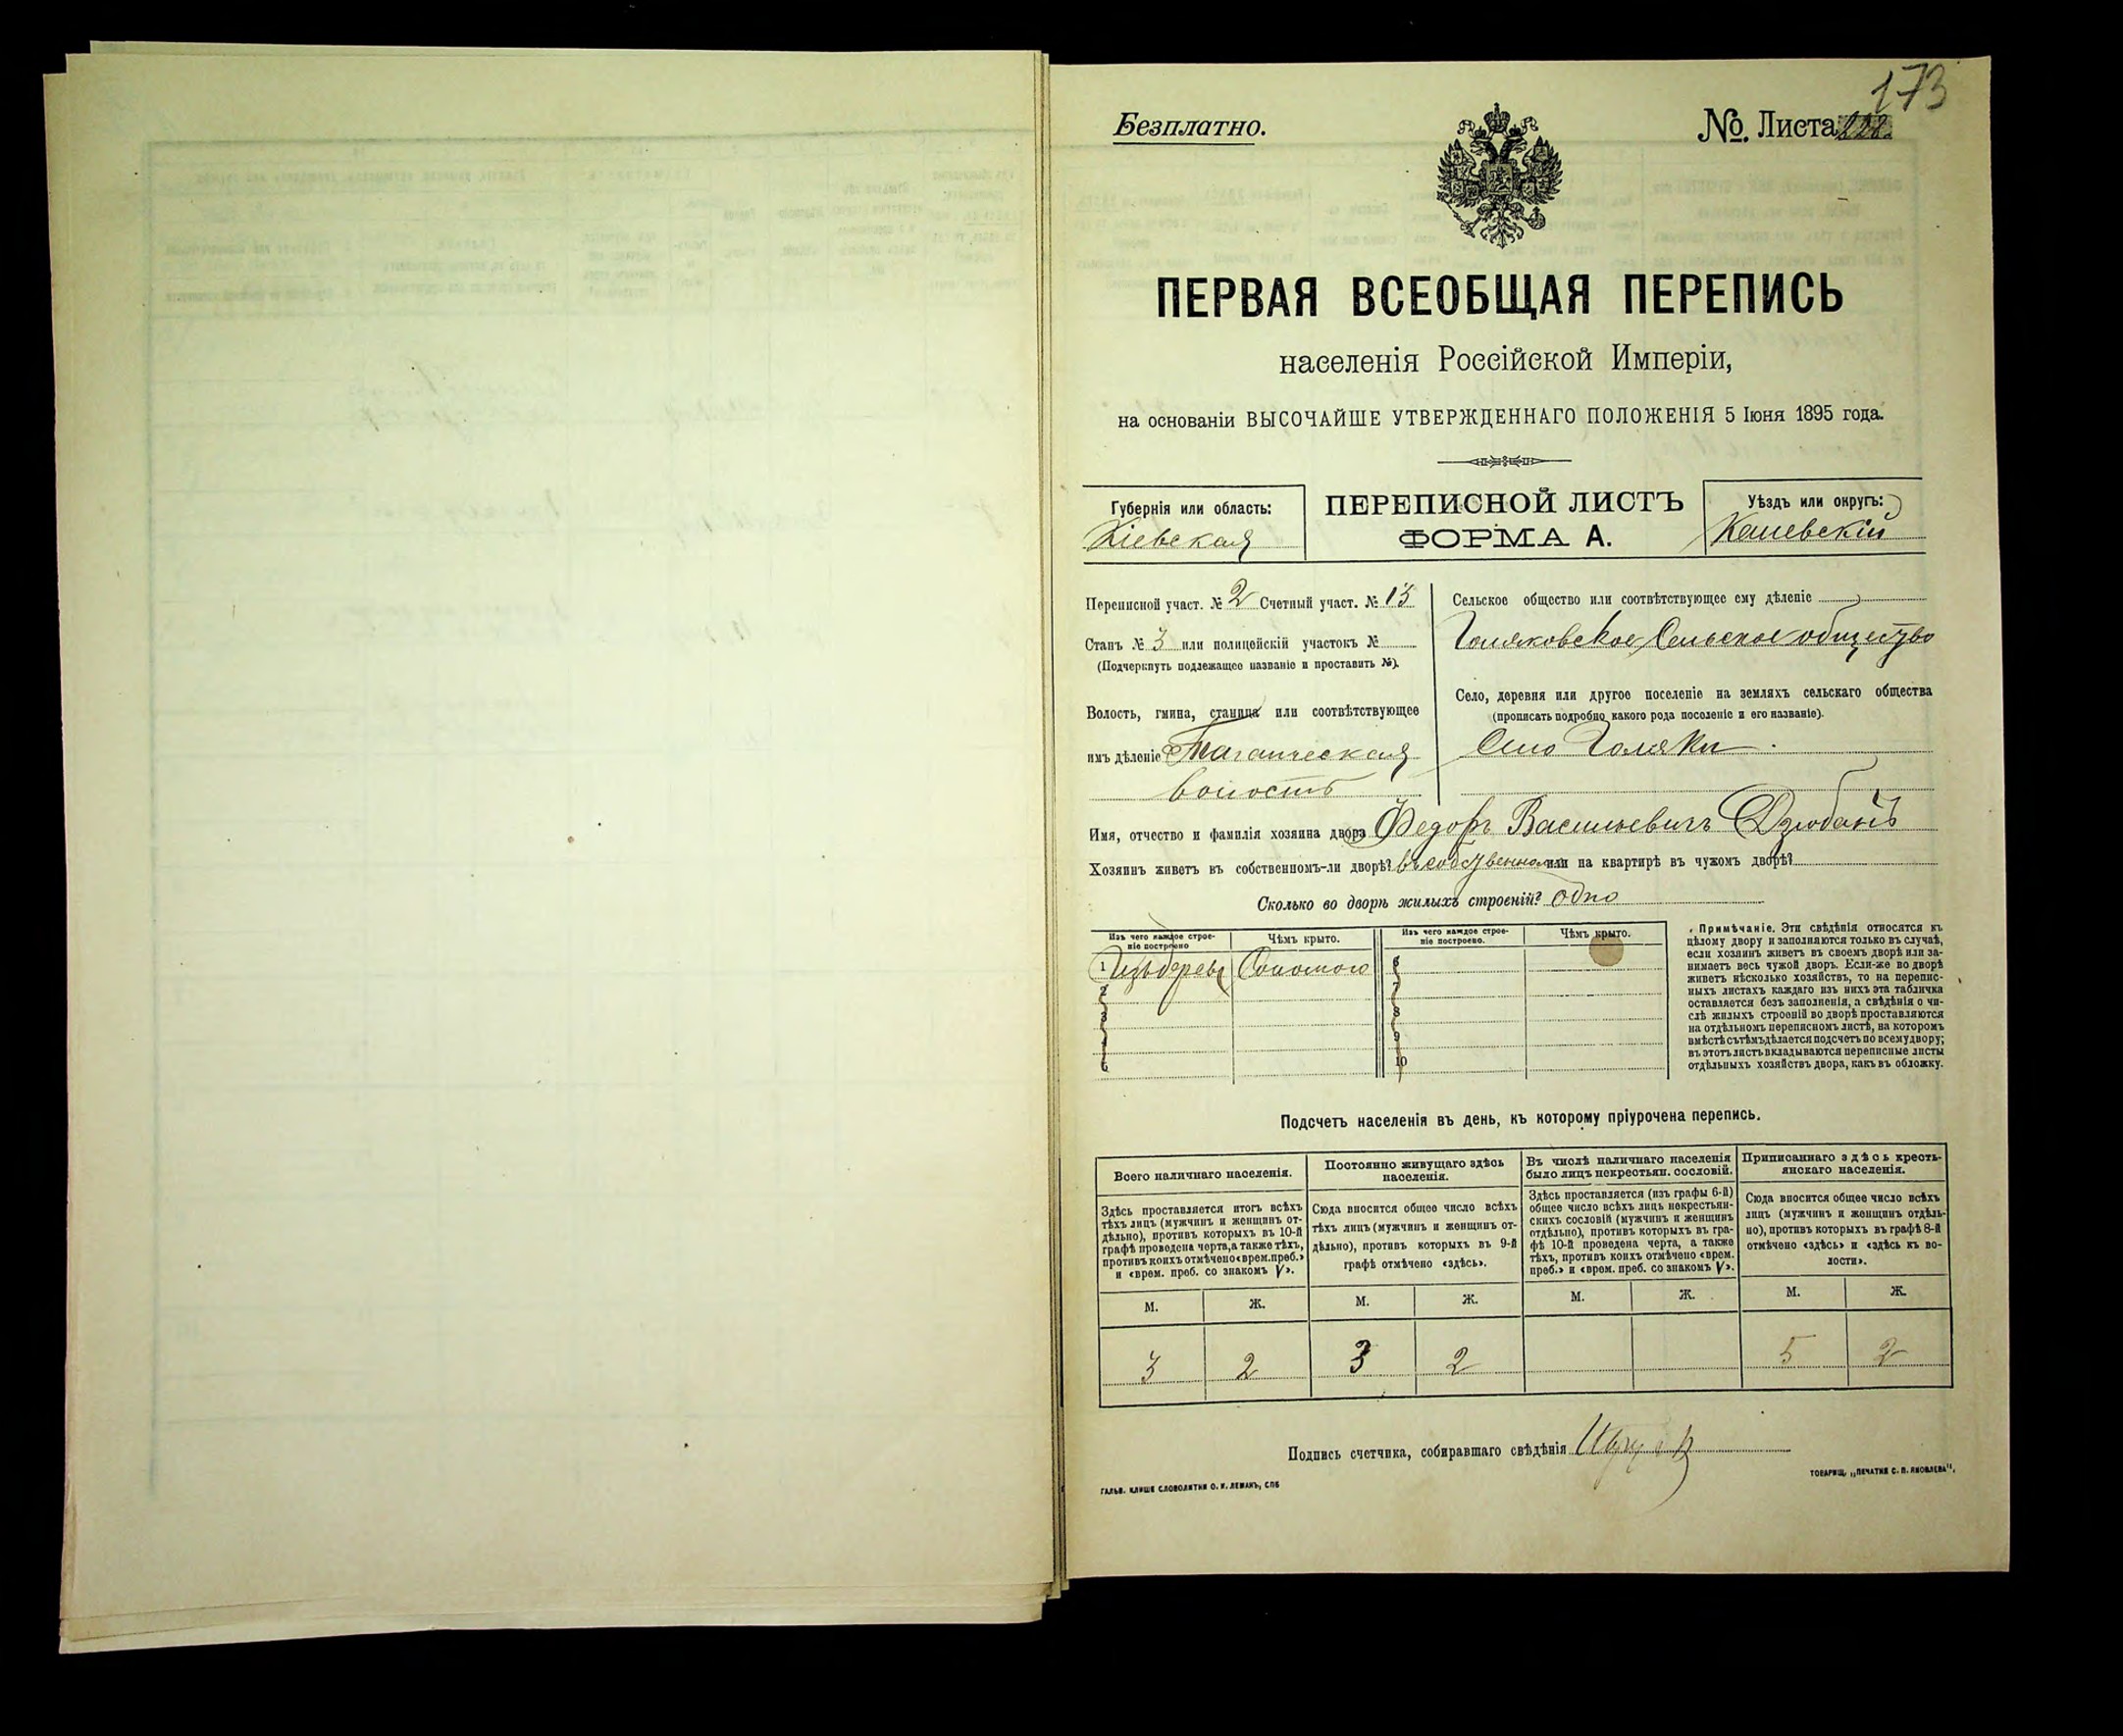 173
Безплатно.
№. Листа
ПЕРВАЯ ВСЕОБЩАЯ ПЕРЕПИСЬ
населенія Россійской Имперіи,
на основаніи ВЫСОЧАЙШЕ УТВЕРЖДЕННАГО ПОЛОЖЕНІЯ 5 Іюня 1895 года.
Губернія или область:
Кіевская
ПЕРЕПИСНОЙ ЛИСТЪ
ФОРМА А.
Уѣздъ или округъ:
Переписной участ. № 2 Счетный участ. № 13
Станъ № 3 или полицейскій участокъ №
(Подчеркнуть подлежащее названіе и проставить №).
Волость, гмина, станица или соотвѣтствующее
имъ дѣленіе
волость
Сельское общество или соотвѣтствующее ему дѣленіе
Голяковское Сельское общество
Село, деревня или другое поселеніе на земляхъ сельскаго общества
(прописать подробно какого рода поселеніе и его названіе).
Село Голяки.
Имя, отчество и фамилія хозяина двора Федоръ Васильевичъ Дзюбанъ
Хозяинъ живетъ въ собственномъ-ли дворѣ? въ собственномъ или на квартирѣ въ чужомъ дворѣ?
Сколько во дворѣ жилыхъ строеній? одно
Изъ чего каждое строе-
ніе построено
Чѣмъ крыто.
Изъ чего каждое строе-
ніе построено.
Чѣмъ крыто.
1 Изъ дерева Соломою
2
3
4
5
6
7
8
9
10
Примѣчаніе. Эти свѣдѣнія относятся къ
цѣлому двору и заполняются только въ случаѣ,
если хозяинъ живетъ въ своемъ дворѣ или за-
нимаетъ весь чужой дворъ. Если-же во дворѣ
живетъ нѣсколько хозяйствъ, то на перепис-
ныхъ листахъ каждаго изъ нихъ эта табличка
оставляется безъ заполненія, а свѣдѣнія о чи-
слѣ жилыхъ строеній во дворѣ проставляются
на отдѣльномъ переписномъ листѣ, на которомъ
вмѣстѣ съ тѣмъ дѣлается подсчетъ по всему двору;
въ этотъ листъ вкладываются переписные листы
отдѣльныхъ хозяйствъ двора, какъ въ обложку.
Подсчетъ населенія въ день, къ которому пріурочена перепись.
Всего наличнаго населенія.
Здѣсь проставляется итогъ всѣхъ
тѣхъ лицъ (мужчинъ и женщинъ от-
дѣльно), противъ которыхъ въ 10-й
графѣ проведена черта, а также тѣхъ,
противъ коихъ отмѣчено «врем. преб.»
и «врем. преб. со знакомъ V».
Постоянно живущаго здѣсь
населенія.
Сюда вносится общее число всѣхъ
тѣхъ лицъ (мужчинъ и женщинъ от-
дѣльно), противъ которыхъ въ 9-й
графѣ отмѣчено «здѣсь».
Въ числѣ наличнаго населенія
было лицъ некрестьян. сословій.
Здѣсь проставляется (изъ графы 6-й)
общее число всѣхъ лицъ некрестьян-
скихъ сословій (мужчинъ и женщинъ
отдѣльно), противъ которыхъ въ гра-
фѣ 10-й проведена черта, а также
тѣхъ, противъ коихъ отмѣчено «врем.
преб.» и «врем. преб. со знакомъ V».
Приписаннаго здѣсь кресть-
янскаго населенія.
Сюда вносится общее число всѣхъ
лицъ (мужчинъ и женщинъ отдѣль-
но), противъ которыхъ въ графѣ 8-й
отмѣчено «здѣсь» и «здѣсь къ во-
лости».
М. Ж. М. Ж. М. Ж. М. Ж.
3 2 3 2 5 2
Подпись счетчика, собиравшаго свѣдѣнія
ГАЛЬВ. КЛИШЕ СЛОВОЛИТНИ О. И. ЛЕМАНЪ, СПБ
ТОВАРИЩ. „ПЕЧАТНЯ С. П. ЯКОВЛЕВА".